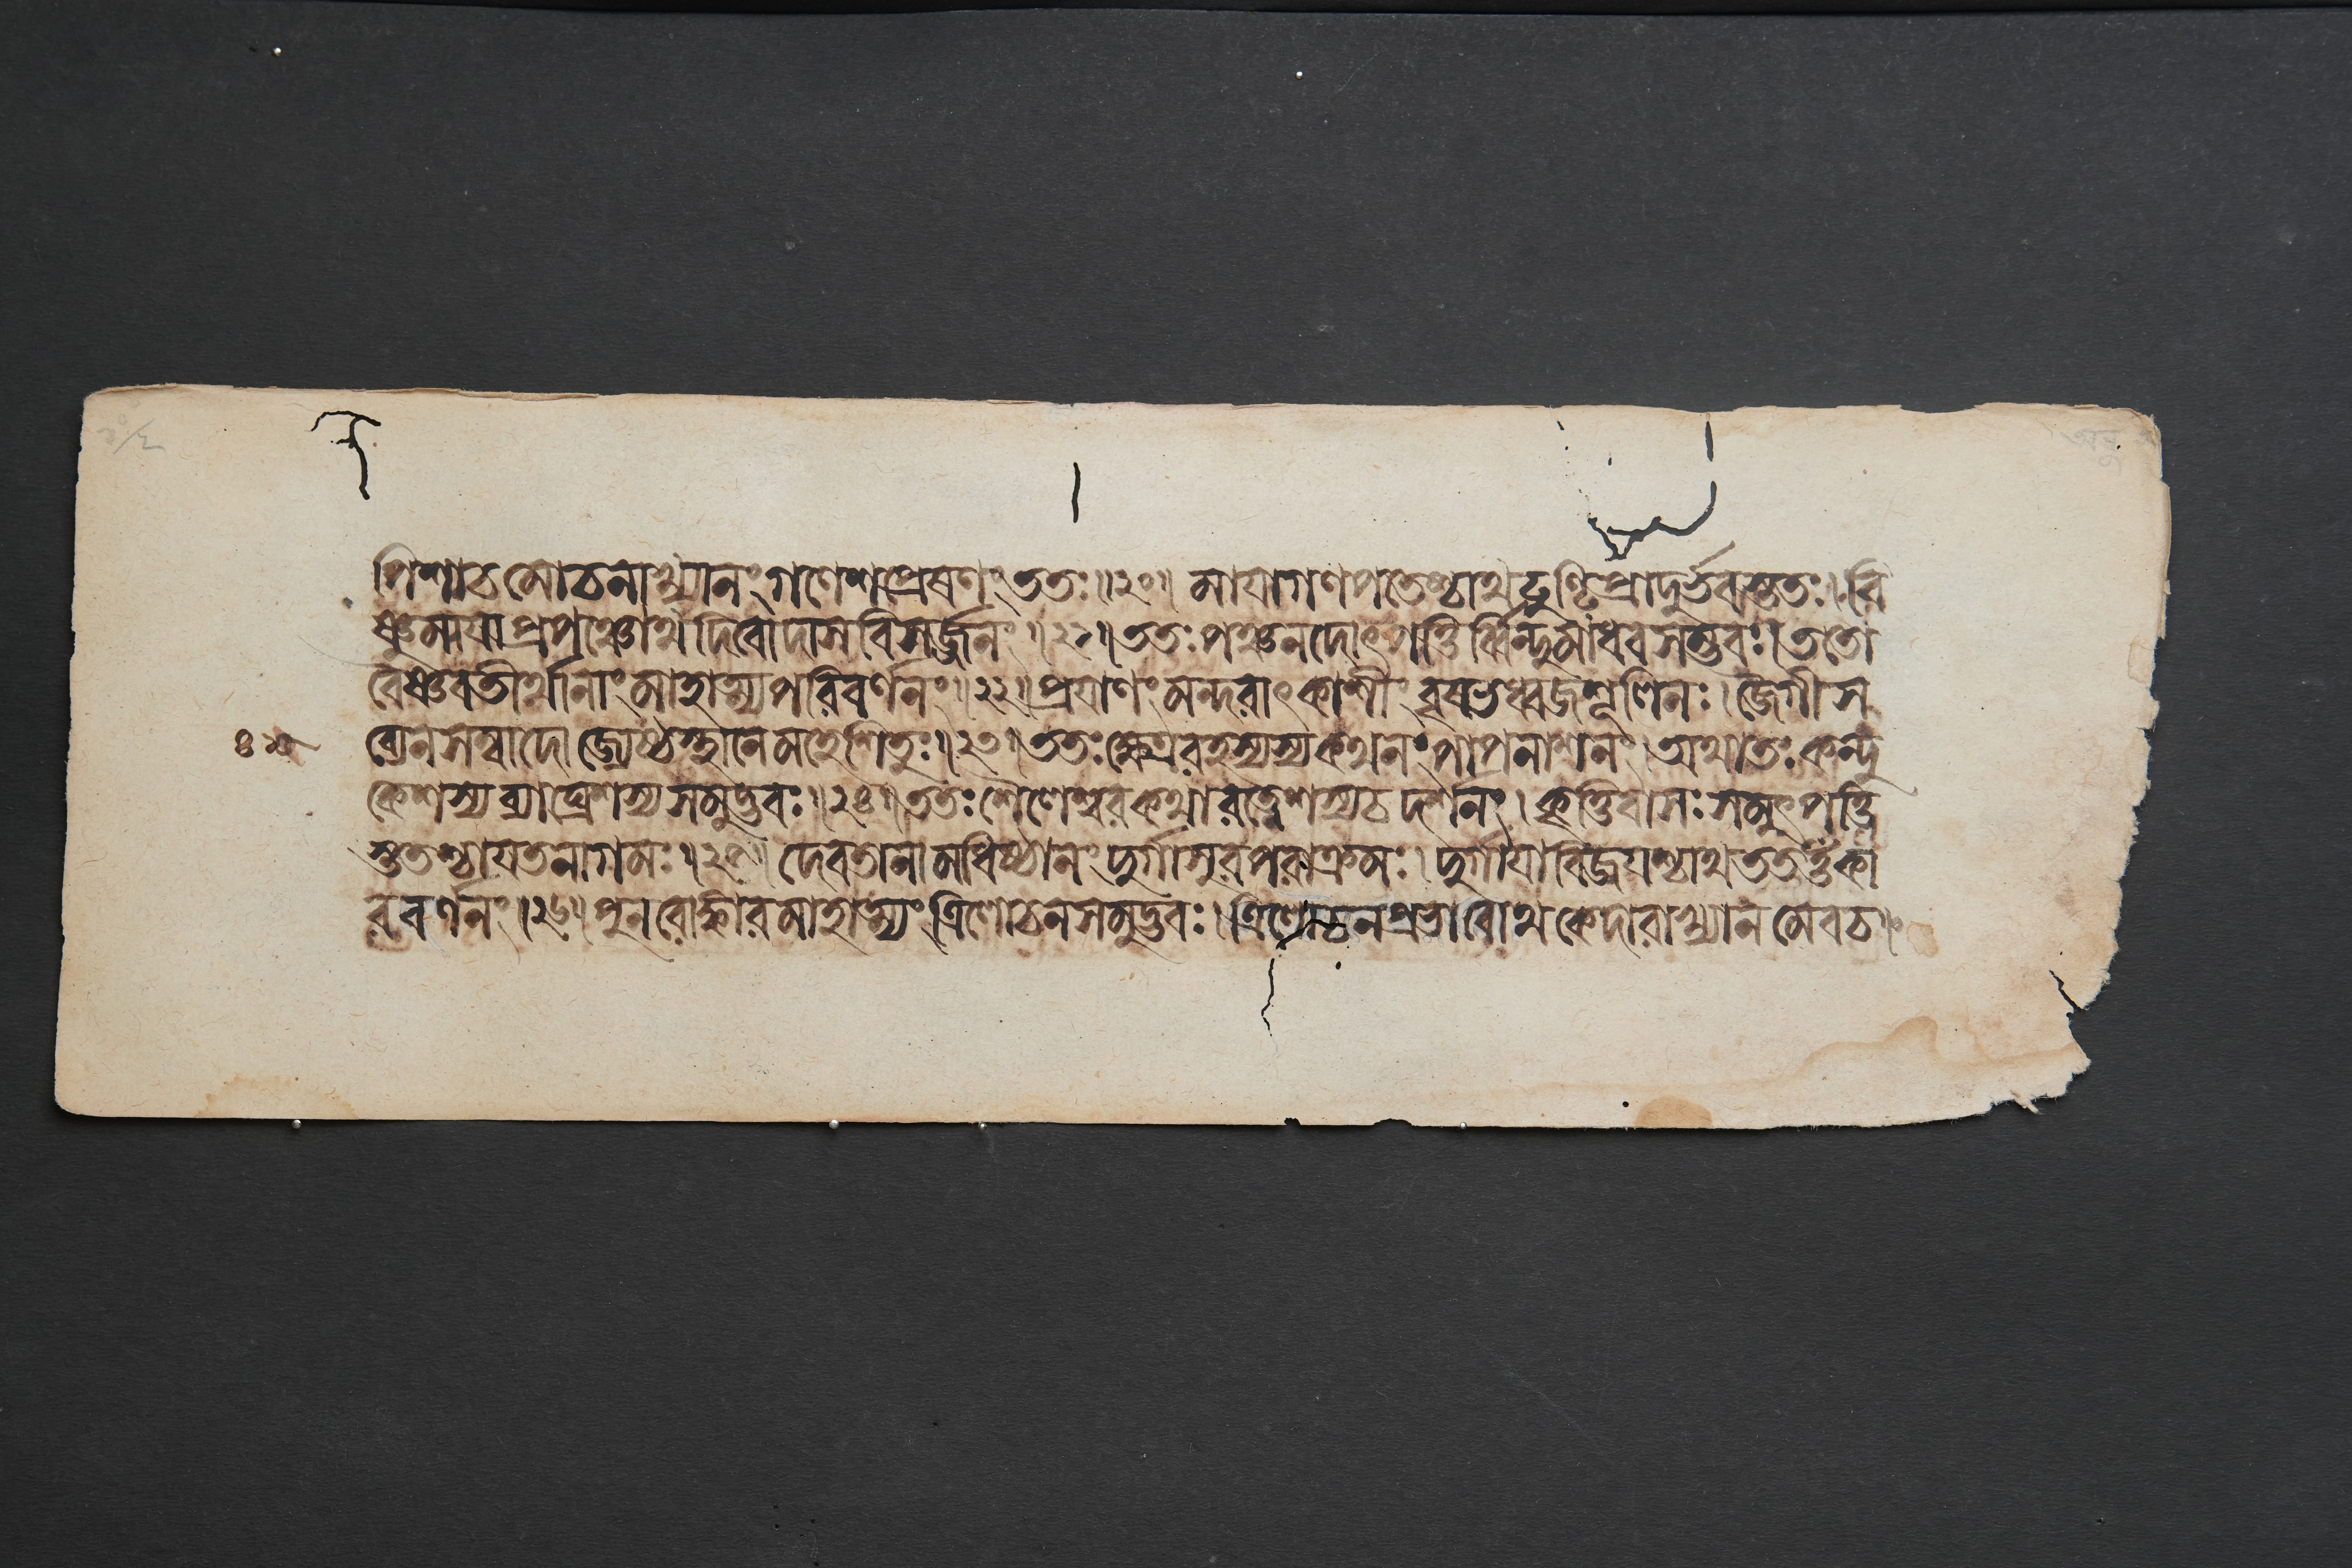 পিশাচমোচনাখ্যানং গণেশপ্রেষণং ততঃ॥২০॥ মায়াগণপতেশ্চাথ ঢুণ্ঢিপ্রাদুর্ভবস্ততঃ। বি
ষ্ণুমায়াপ্রপঞ্চোথ দিবোদাসবিসর্জ্জনং॥২১॥ ততঃ পঞ্চনদোৎপত্তির্ব্বিন্দুমাধবসম্ভবঃ। ততো
বৈষ্ণবতীর্থানাং মাহাত্ম্যপরিবর্ণনং॥২২॥ প্রয়াণং মন্দরাৎ কাশীং বৃষভধ্বজশূলিনঃ। জৈগীস
ব্যেন সম্বাদো জ্যেষ্ঠস্থানে মহেশিতুঃ॥২৩॥ ততঃ ক্ষেত্ররহস্যস্য কথনং পাপনাশনং। অথাতঃ কন্দু
কেশস্য ব্যাঘ্রেশস্য সমুদ্ভবঃ॥২৪॥ ততঃ শৈলেশ্বরকথা রত্নেশস্য চ দর্শনং। কৃত্তিবাসঃ সমুৎপত্তি
স্ততশ্চায়তনাগমঃ॥২৫॥ দেবতানামধিষ্ঠানং দুর্গাসুরপরাক্রমঃ। দুর্গায়া বিজয়শ্চাথ তত ওঁকা
রবর্ণনং॥২৬॥ পুনরোঙ্কারমাহাত্ম্যং ত্রিলোচনসমুদ্ভবঃ। ত্রিলোচনপ্রভাবোথ কেদারাখ্যানমেব চ॥